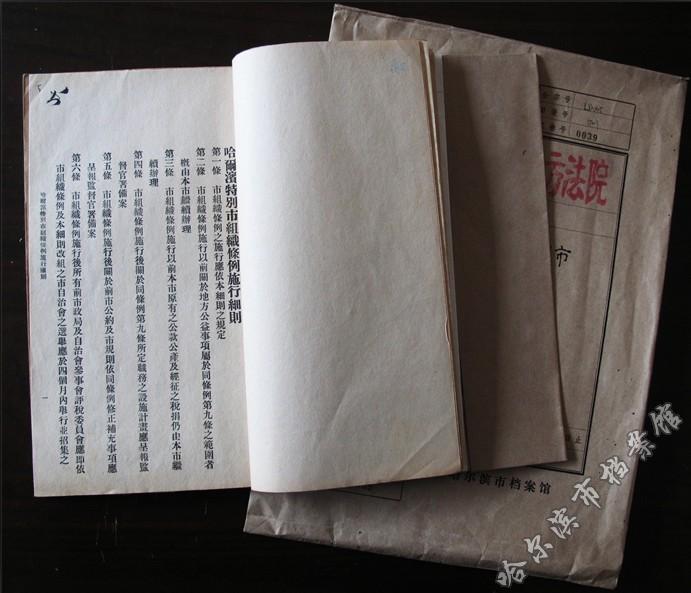 哈爾濱特別市組織條例施行細則
第一條 市組織條例之施行應依本細則之規定
第二條 市組織條例施行以前關於地方公益事項屬於同條例第九條之範圍者
槪由本市繼續辦理
第三條 市組織條例施行以前本市原有之公款公產及經征之稅捐仍由本市繼
續辦理
第四條 市組織條例施行後關於同條例第九條所定職務之設施計畫應呈報監
督官署備案
第五條 市組織條例施行後關於前市公約及市規則依同條例修正補充事項應
呈報監督官署備案
第六條 市組織條例施行後所有前市政局及自治會參事會評稅委員會應即依
市組織條例及本細則改組之市自治會之選舉應於四個月內舉行並招集之
哈爾濱特別市組織條例施行細則
一
0039
法院
市
止
哈尔滨市档案馆
哈尔滨市档案馆